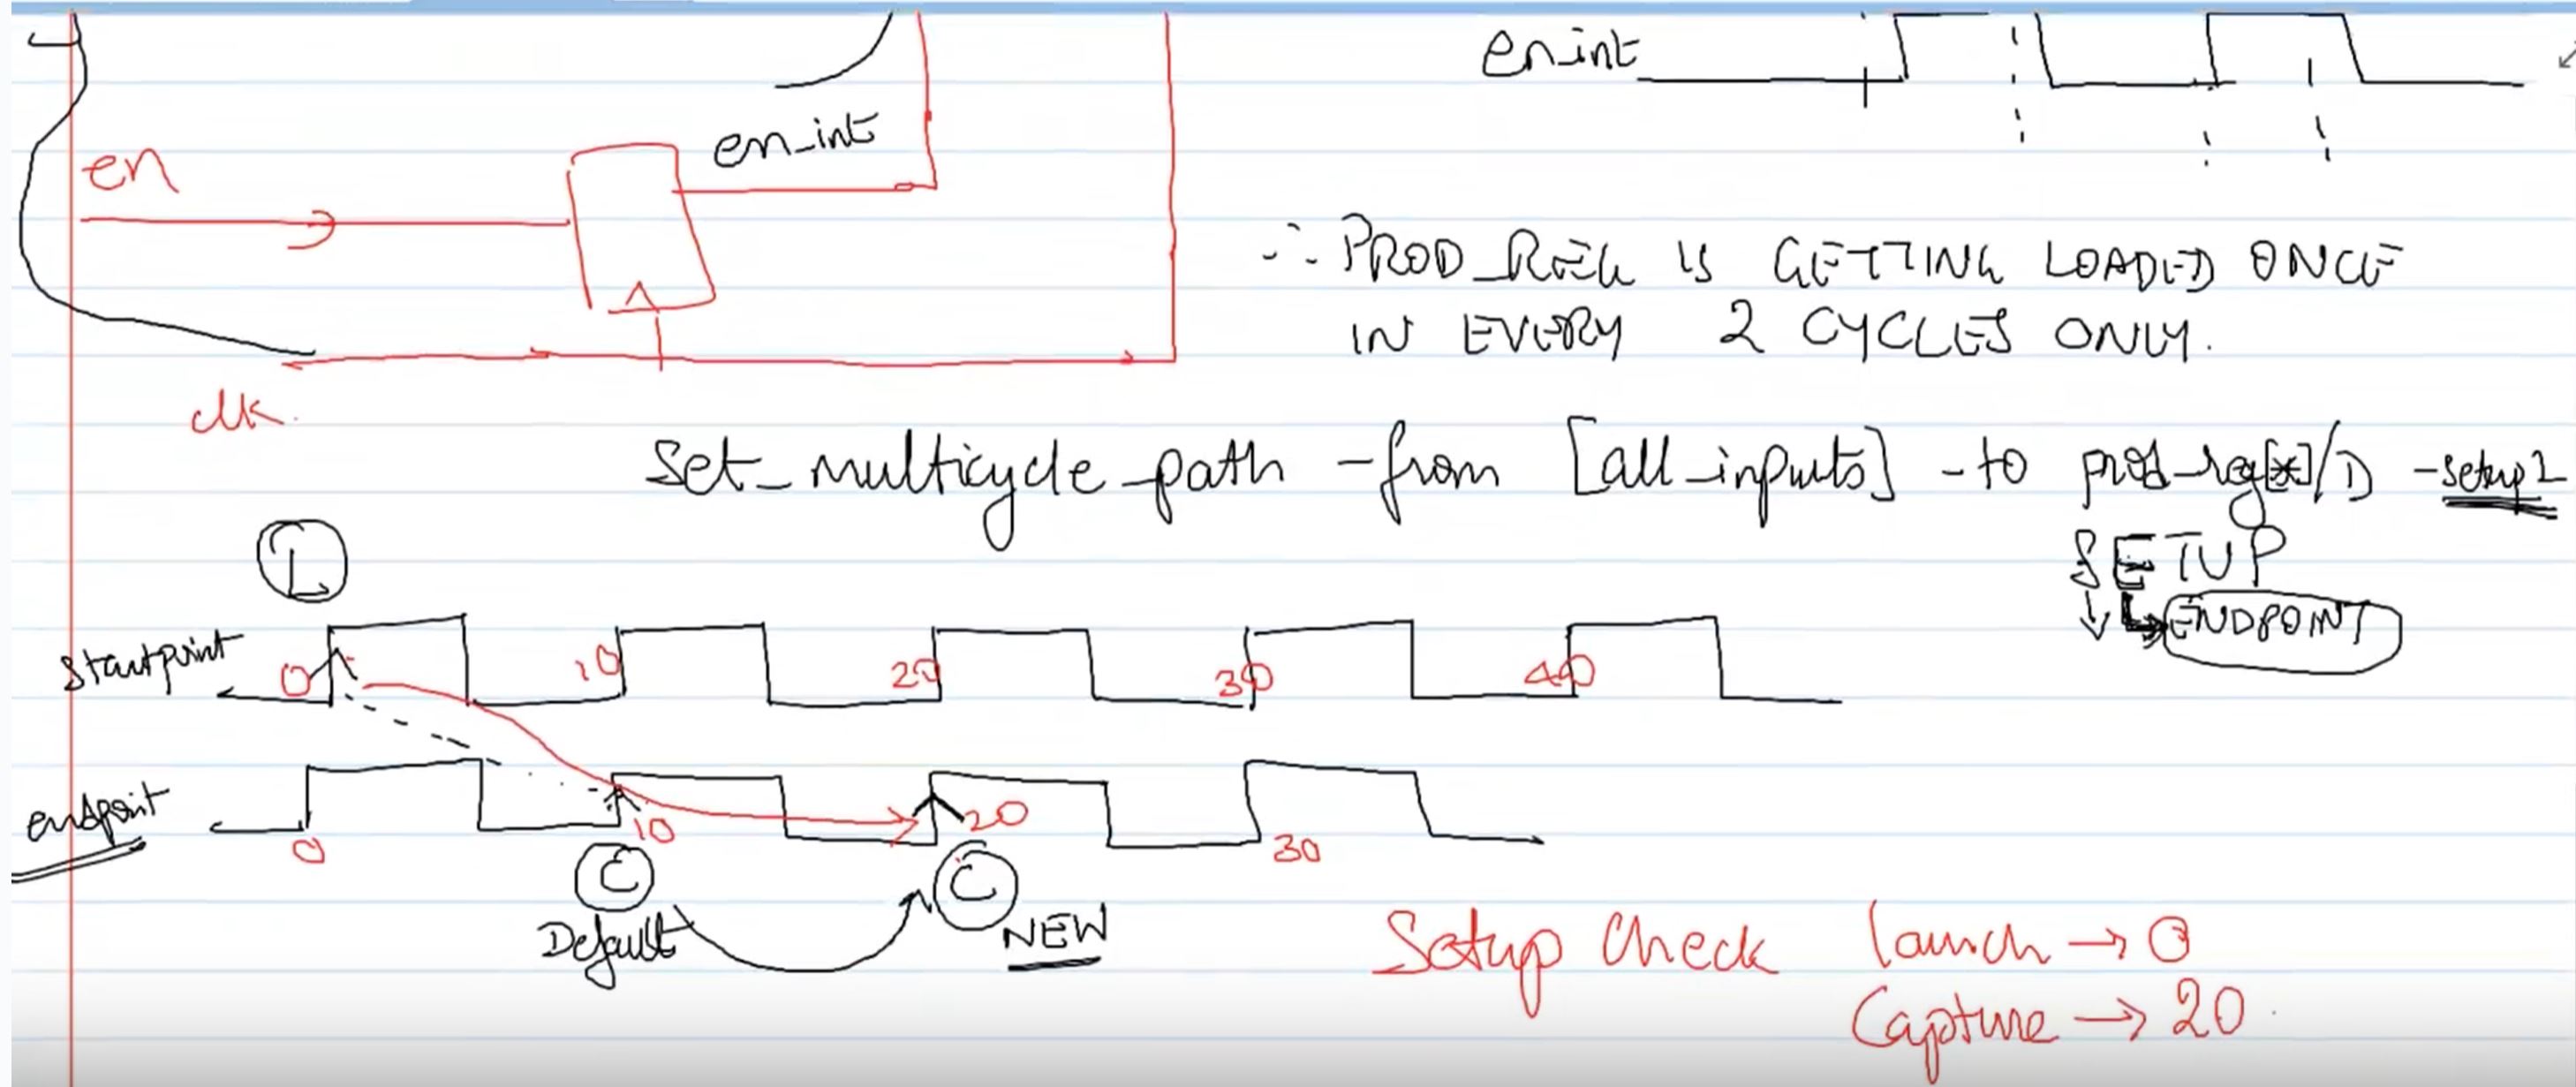 en_int
en_int
en
∴ PROD_REG IS GETTING LOADED ONCE
IN EVERY 2 CYCLES ONLY.
clk.
Set_multicycle_path -from [all_inputs] -to prod_reg[*]/D -setup 2
L
SETUP
ENDPOINT
Startpoint
0 10 20 30 40
endpoint
0 10 20 30
C C
Default NEW
Setup Check launch → 0
Capture → 20.